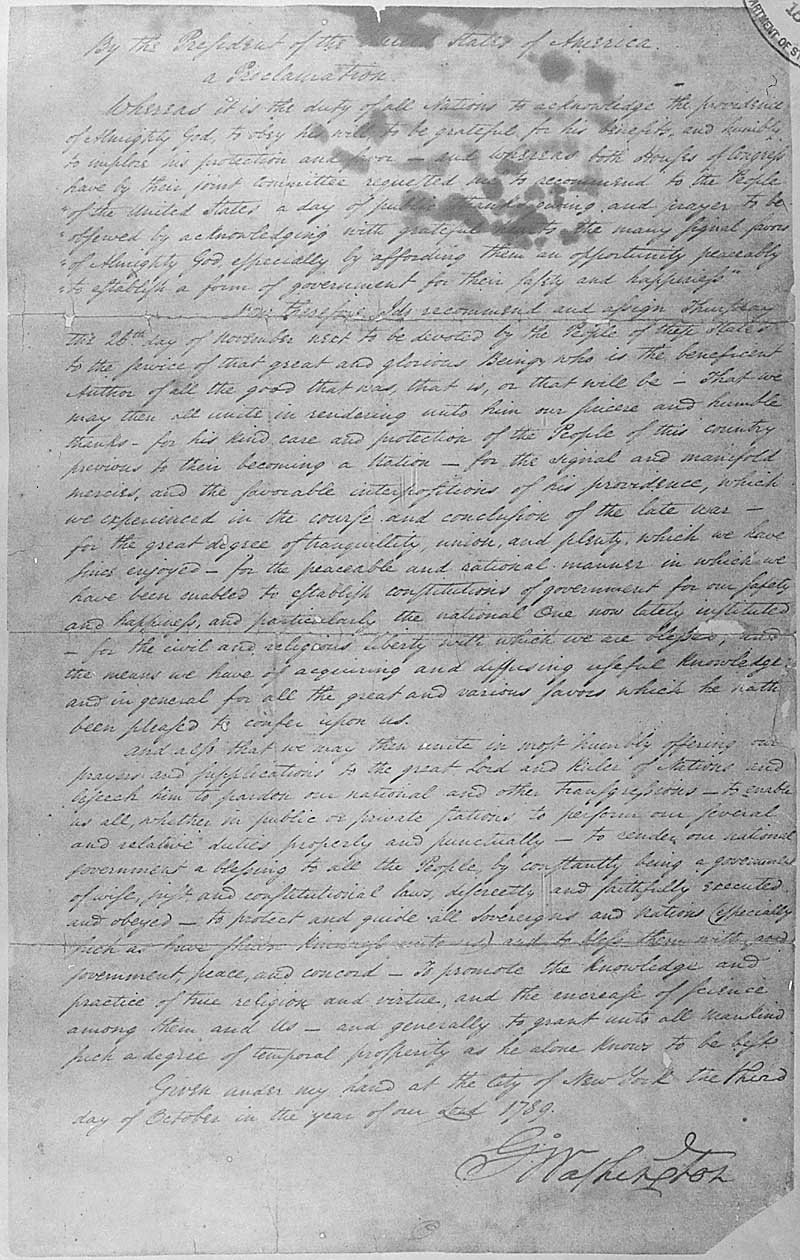 By the President of the United States of America.
a Proclamation.
Whereas it is the duty of all Nations to acknowledge the providence
of Almighty God, to obey his will, to be grateful for his benefits, and humbly
to implore his protection and favor — and whereas both Houses of Congress
have by their joint Committee requested me "to recommend to the People
"of the United States a day of public thanksgiving and prayer to be
"observed by acknowledging with grateful hearts the many signal favors
"of Almighty God, especially by affording them an opportunity peaceably
"to establish a form of government for their safety and happiness"
Now therefore I do recommend and assign Thursday
the 26th day of November next to be devoted by the People of these States
to the service of that great and glorious Being, who is the beneficent
Author of all the good that was, that is, or that will be — That we
may then all unite in rendering unto him our sincere and humble
thanks — for his kind care and protection of the People of this country
previous to their becoming a Nation — for the signal and manifold
mercies, and the favorable interpositions of his providence, which
we experienced in the course and conclusion of the late war —
for the great degree of tranquillity, union, and plenty, which we have
since enjoyed — for the peaceable and rational manner in which we
have been enabled to establish constitutions of government for our safety
and happiness, and particularly the national One now lately instituted
— for the civil and religious liberty with which we are blessed, and
the means we have of acquiring and diffusing useful knowledge;
and in general for all the great and various favors which he hath
been pleased to confer upon us.
And also that we may then unite in most humbly offering our
prayers and supplications to the great Lord and Ruler of Nations and
beseech him to pardon our national and other transgressions — to enable
us all, whether in public or private stations, to perform our several
and relative duties properly and punctually — to render our national
government a blessing to all the People, by constantly being a government
of wise, just and constitutional laws, discreetly and faithfully executed
and obeyed — to protect and guide all Sovereigns and Nations (especially
such as have shewn kindness unto us) and to bless them with good
government, peace, and concord — To promote the knowledge and
practice of true religion and virtue, and the encrease of science
among them and Us — and generally to grant unto all Mankind
such a degree of temporal prosperity as he alone knows to be best.
Given under my hand at the City of New York the third
day of October in the year of our Lord 1789.
Go Washington